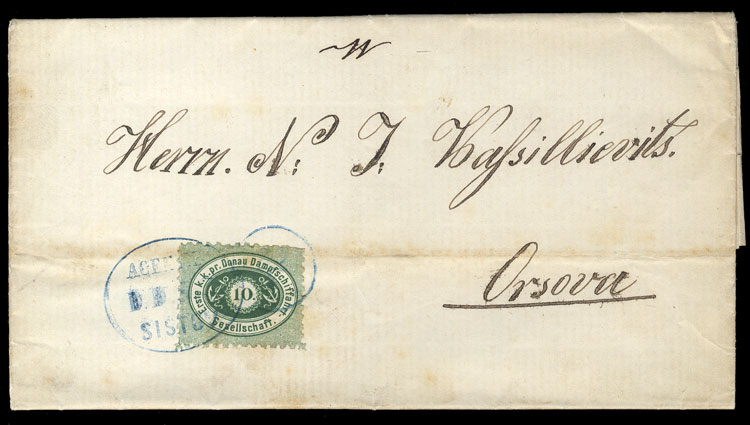 Herrn. N. J. Vassillievits.
Orsova
AGEN
D. D
SISTO
Erste k.k.pr. Donau Dampfschiffahrt-
10.
Gesellschaft.